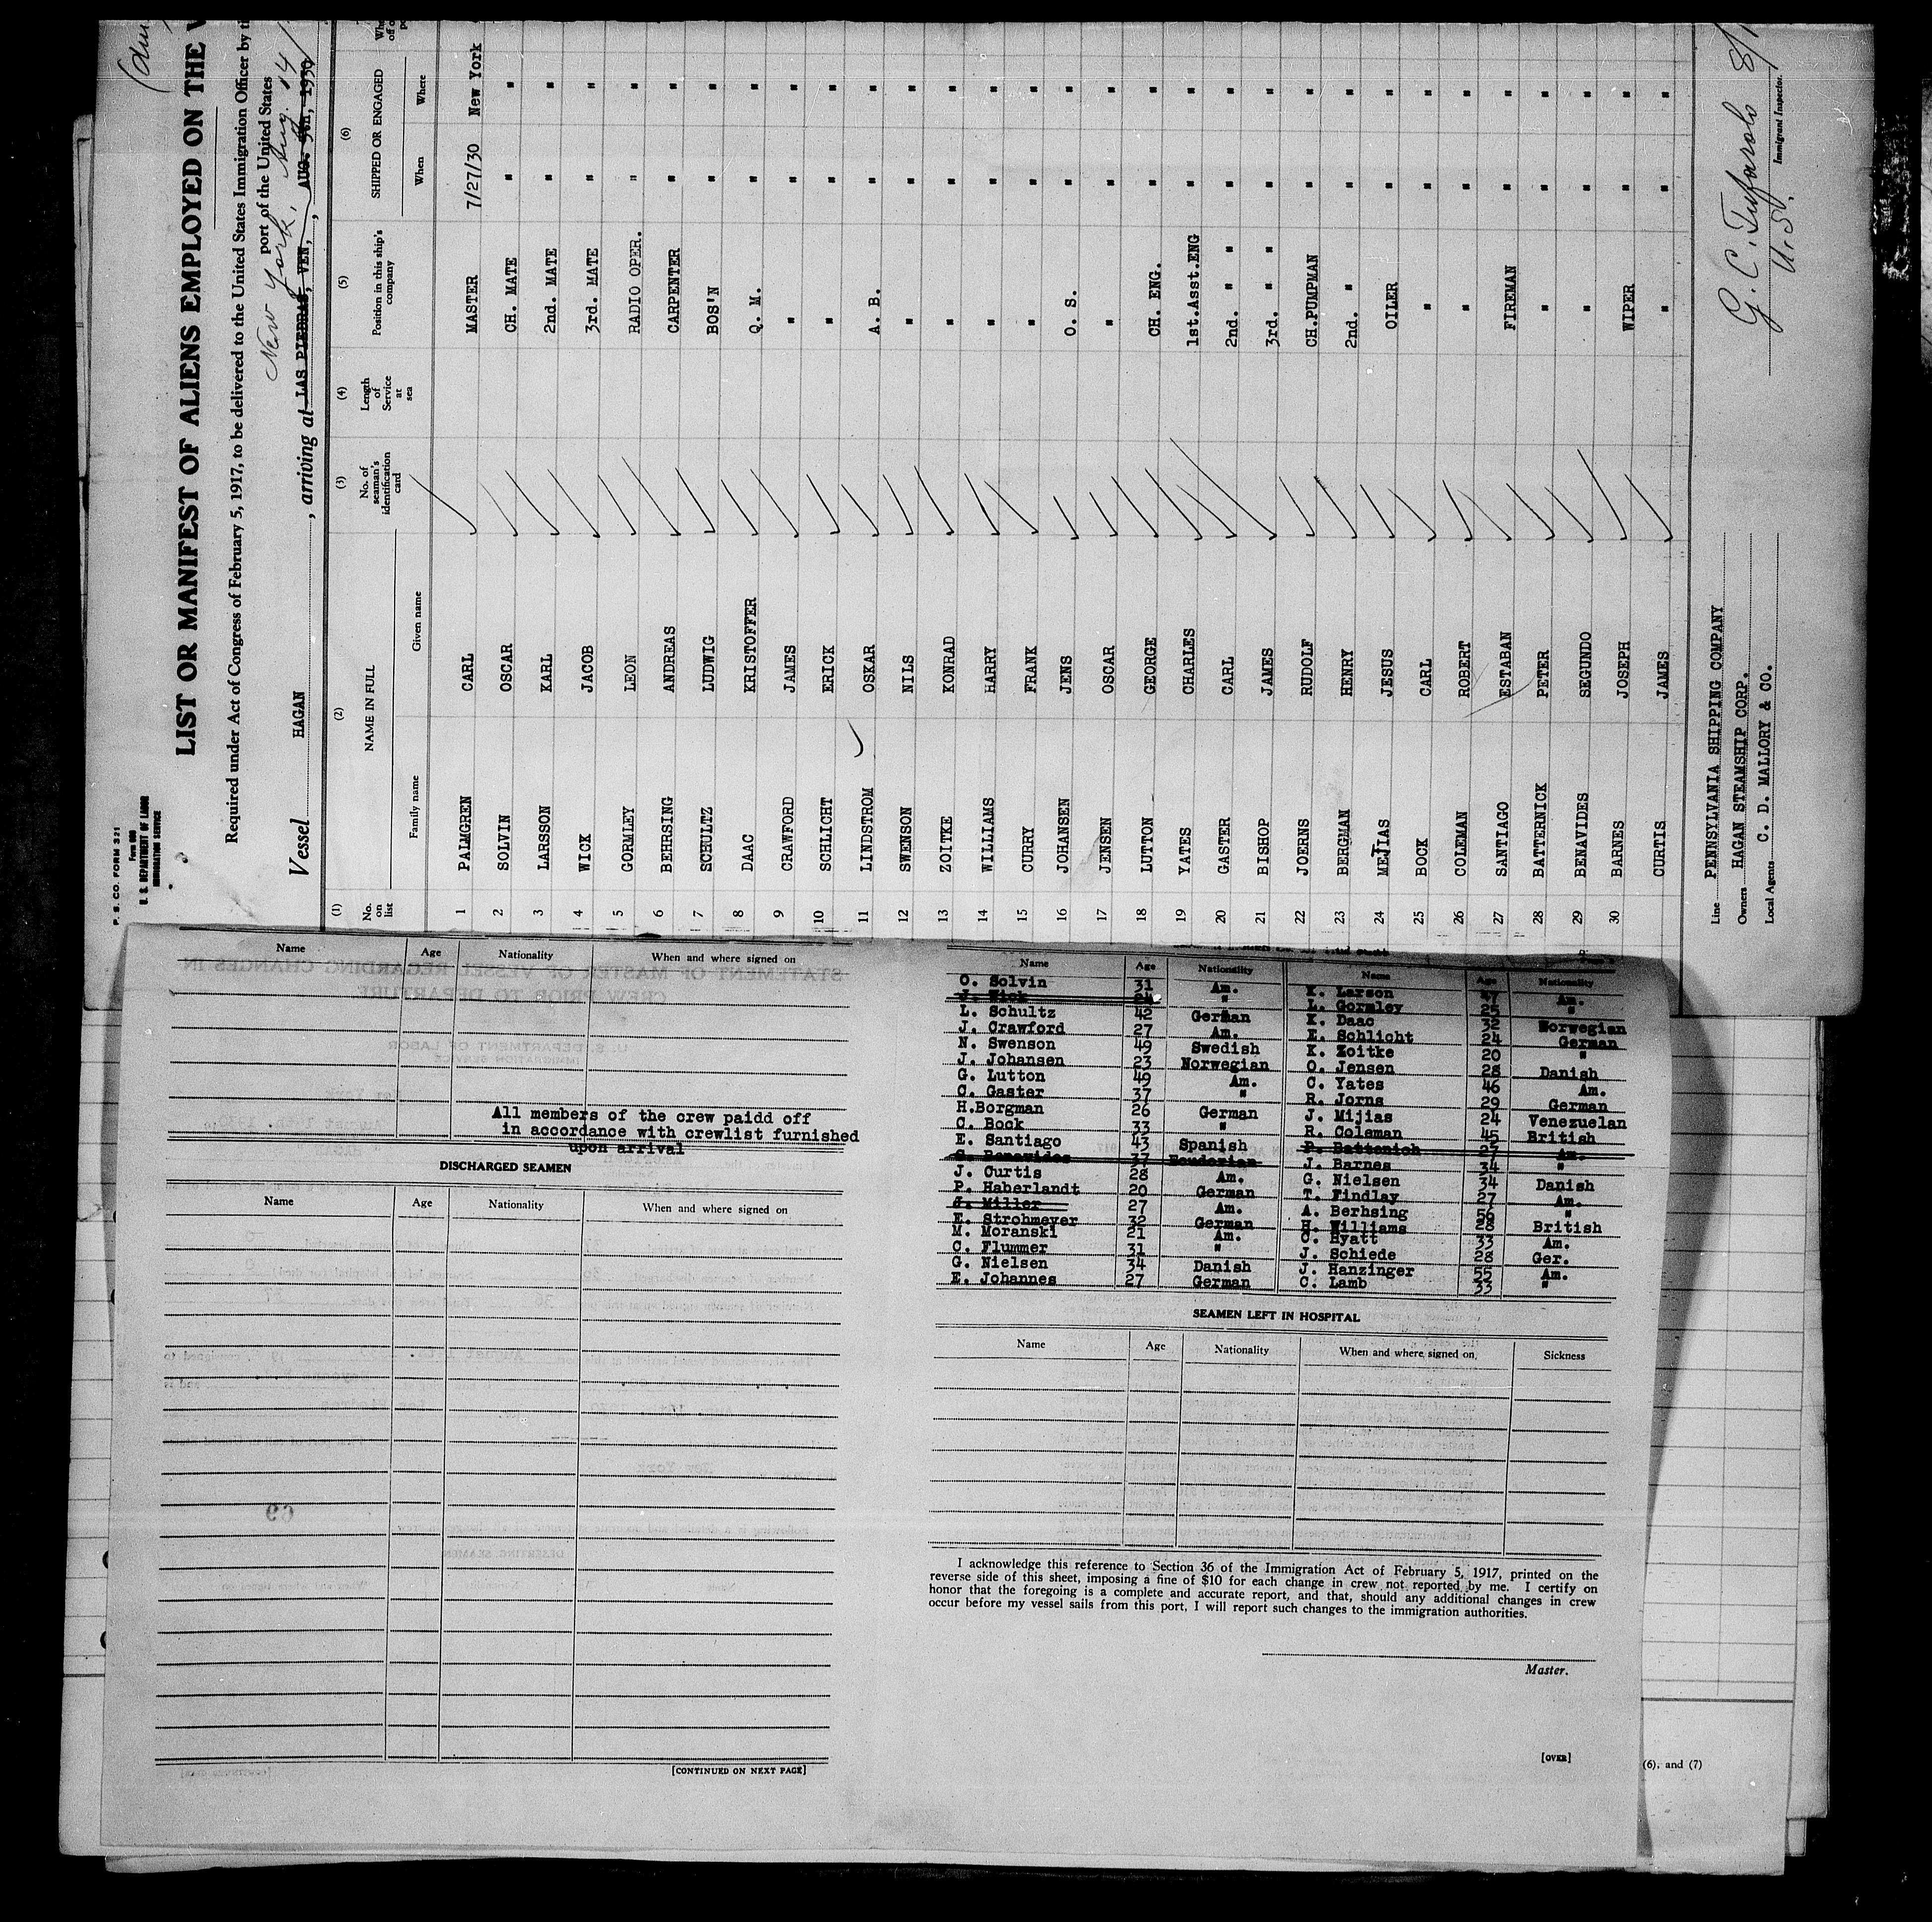 P. S. CO. FORM 321
Form 680
U. S. DEPARTMENT OF LABOR
IMMIGRATION SERVICE
LIST OR MANIFEST OF ALIENS EMPLOYED ON THE V
Required under Act of Congress of February 5, 1917, to be delivered to the United States Immigration Officer by t
port of the United States
New York, Aug. 14
Vessel HAGAN , arriving at LAS PIEDRAS, VEN, AUG. 5th, 1930
(1) (2) (3) (4) (5) (6)
No. on list NAME IN FULL No. of seaman's identification card Length of Service at sea Position in this ship's company SHIPPED OR ENGAGED
Family name Given name When Where
1 PALMGREN CARL MASTER 7/27/30 New York
2 SOLVIN OSCAR CH. MATE " "
3 LARSSON KARL 2nd. MATE " "
4 WICK JACOB 3rd. MATE " "
5 GORMLEY LEON RADIO OPER. " "
6 BEHRSING ANDREAS CARPENTER " "
7 SCHULTZ LUDWIG BOS'N " "
8 DAAC KRISTOFFER Q. M. " "
9 CRAWFORD JAMES " " "
10 SCHLICHT ERICK " " "
11 LINDSTROM OSKAR A. B. " "
12 SWENSON NILS " " "
13 ZOITKE KONRAD " " "
14 WILLIAMS HARRY " " "
15 CURRY FRANK " " "
16 JOHANSEN JENS O. S. " "
17 JENSEN OSCAR " " "
18 LUTTON GEORGE CH. ENG. " "
19 YATES CHARLES 1st.Asst.ENG " "
20 GASTER CARL 2nd. " " " "
21 BISHOP JAMES 3rd. " " " "
22 JOERNS RUDOLF CH.PUMPMAN " "
23 BERGMAN HENRY 2nd. " " "
24 MEJIAS JESUS OILER " "
25 BOCK CARL " " "
26 COLEMAN ROBERT " " "
27 SANTIAGO ESTABAN FIREMAN " "
28 BATTERNICK PETER " " "
29 BENAVIDES SEGUNDO " " "
30 BARNES JOSEPH WIPER " "
CURTIS JAMES " " "
Line PENNSYLVANIA SHIPPING COMPANY
Owners HAGAN STEAMSHIP CORP.
Local Agents C. D. MALLORY & CO.
Immigrant Inspector.
Name Age Nationality When and where signed on
All members of the crew paidd off
in accordance with crewlist furnished
upon arrival
DISCHARGED SEAMEN
Name Age Nationality When and where signed on
[CONTINUED ON NEXT PAGE]
Name Age Nationality Name Age Nationality
O. Solvin 31 Am. K. Larson 47 Am.
J. Wick 24 " L. Gormley 25 "
L. Schultz 42 German K. Daac 32 Norwegian
J. Crawford 27 Am. E. Schlicht 24 German
N. Swenson 49 Swedish K. Zoitke 20 "
J. Johansen 23 Norwegian O. Jensen 28 Danish
G. Lutton 49 Am. C. Yates 46 Am.
C. Gaster 37 " R. Jorns 29 German
H.Borgman 26 German J. Mijias 24 Venezuelan
C. Bock 33 " R. Coleman 45 British
E. Santiago 43 Spanish P. Battenich 27 Am.
S. Benavides 37 Ecudorian J. Barnes 34 "
J. Curtis 28 Am. G. Nielsen 34 Danish
P. Haberlandt 20 German T. Findlay 27 Am.
J. Miller 27 Am. A. Berhsing 56 "
E. Strohmeyer 32 German H. Williams 28 British
M. Moranski 21 Am. O. Hyatt 33 Am.
C. Flummer 31 " J. Schiede 28 Ger.
G. Nielsen 34 Danish J. Hanzinger 55 Am.
E. Johannes 27 German C. Lamb 33 "
SEAMEN LEFT IN HOSPITAL
Name Age Nationality When and where signed on, Sickness
I acknowledge this reference to Section 36 of the Immigration Act of February 5, 1917, printed on the
reverse side of this sheet, imposing a fine of $10 for each change in crew not reported by me. I certify on
honor that the foregoing is a complete and accurate report, and that, should any additional changes in crew
occur before my vessel sails from this port, I will report such changes to the immigration authorities.
Master.
[OVER]
(6), and (7)